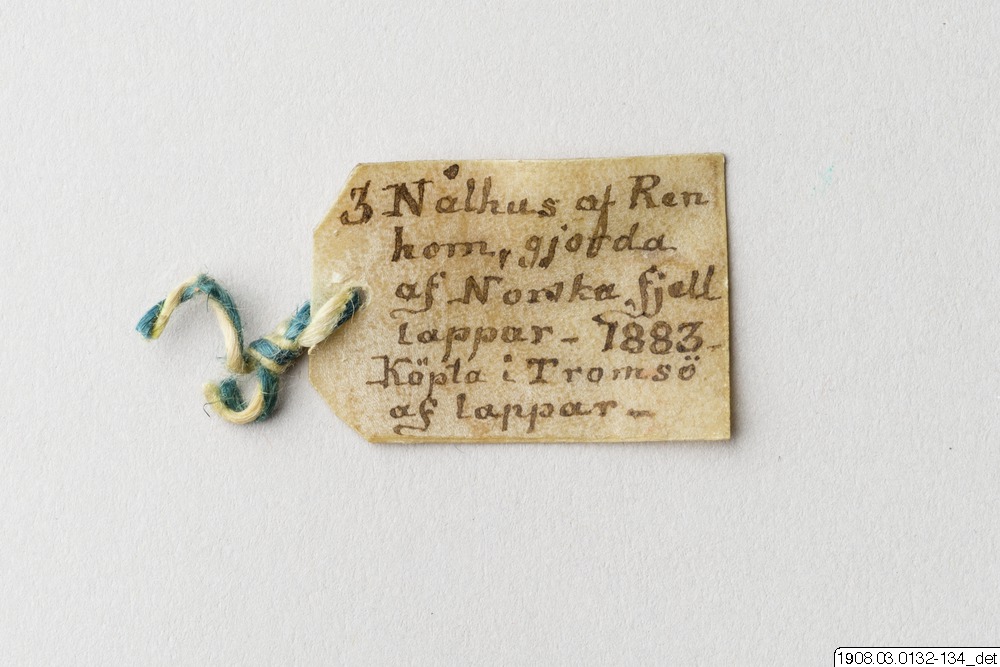 3 Nålhus af Ren
horn, gjorda
af Norska fjell
lappar - 1883-
Köpta i Tromsö
af lappar -
1908.03.0132-134_det